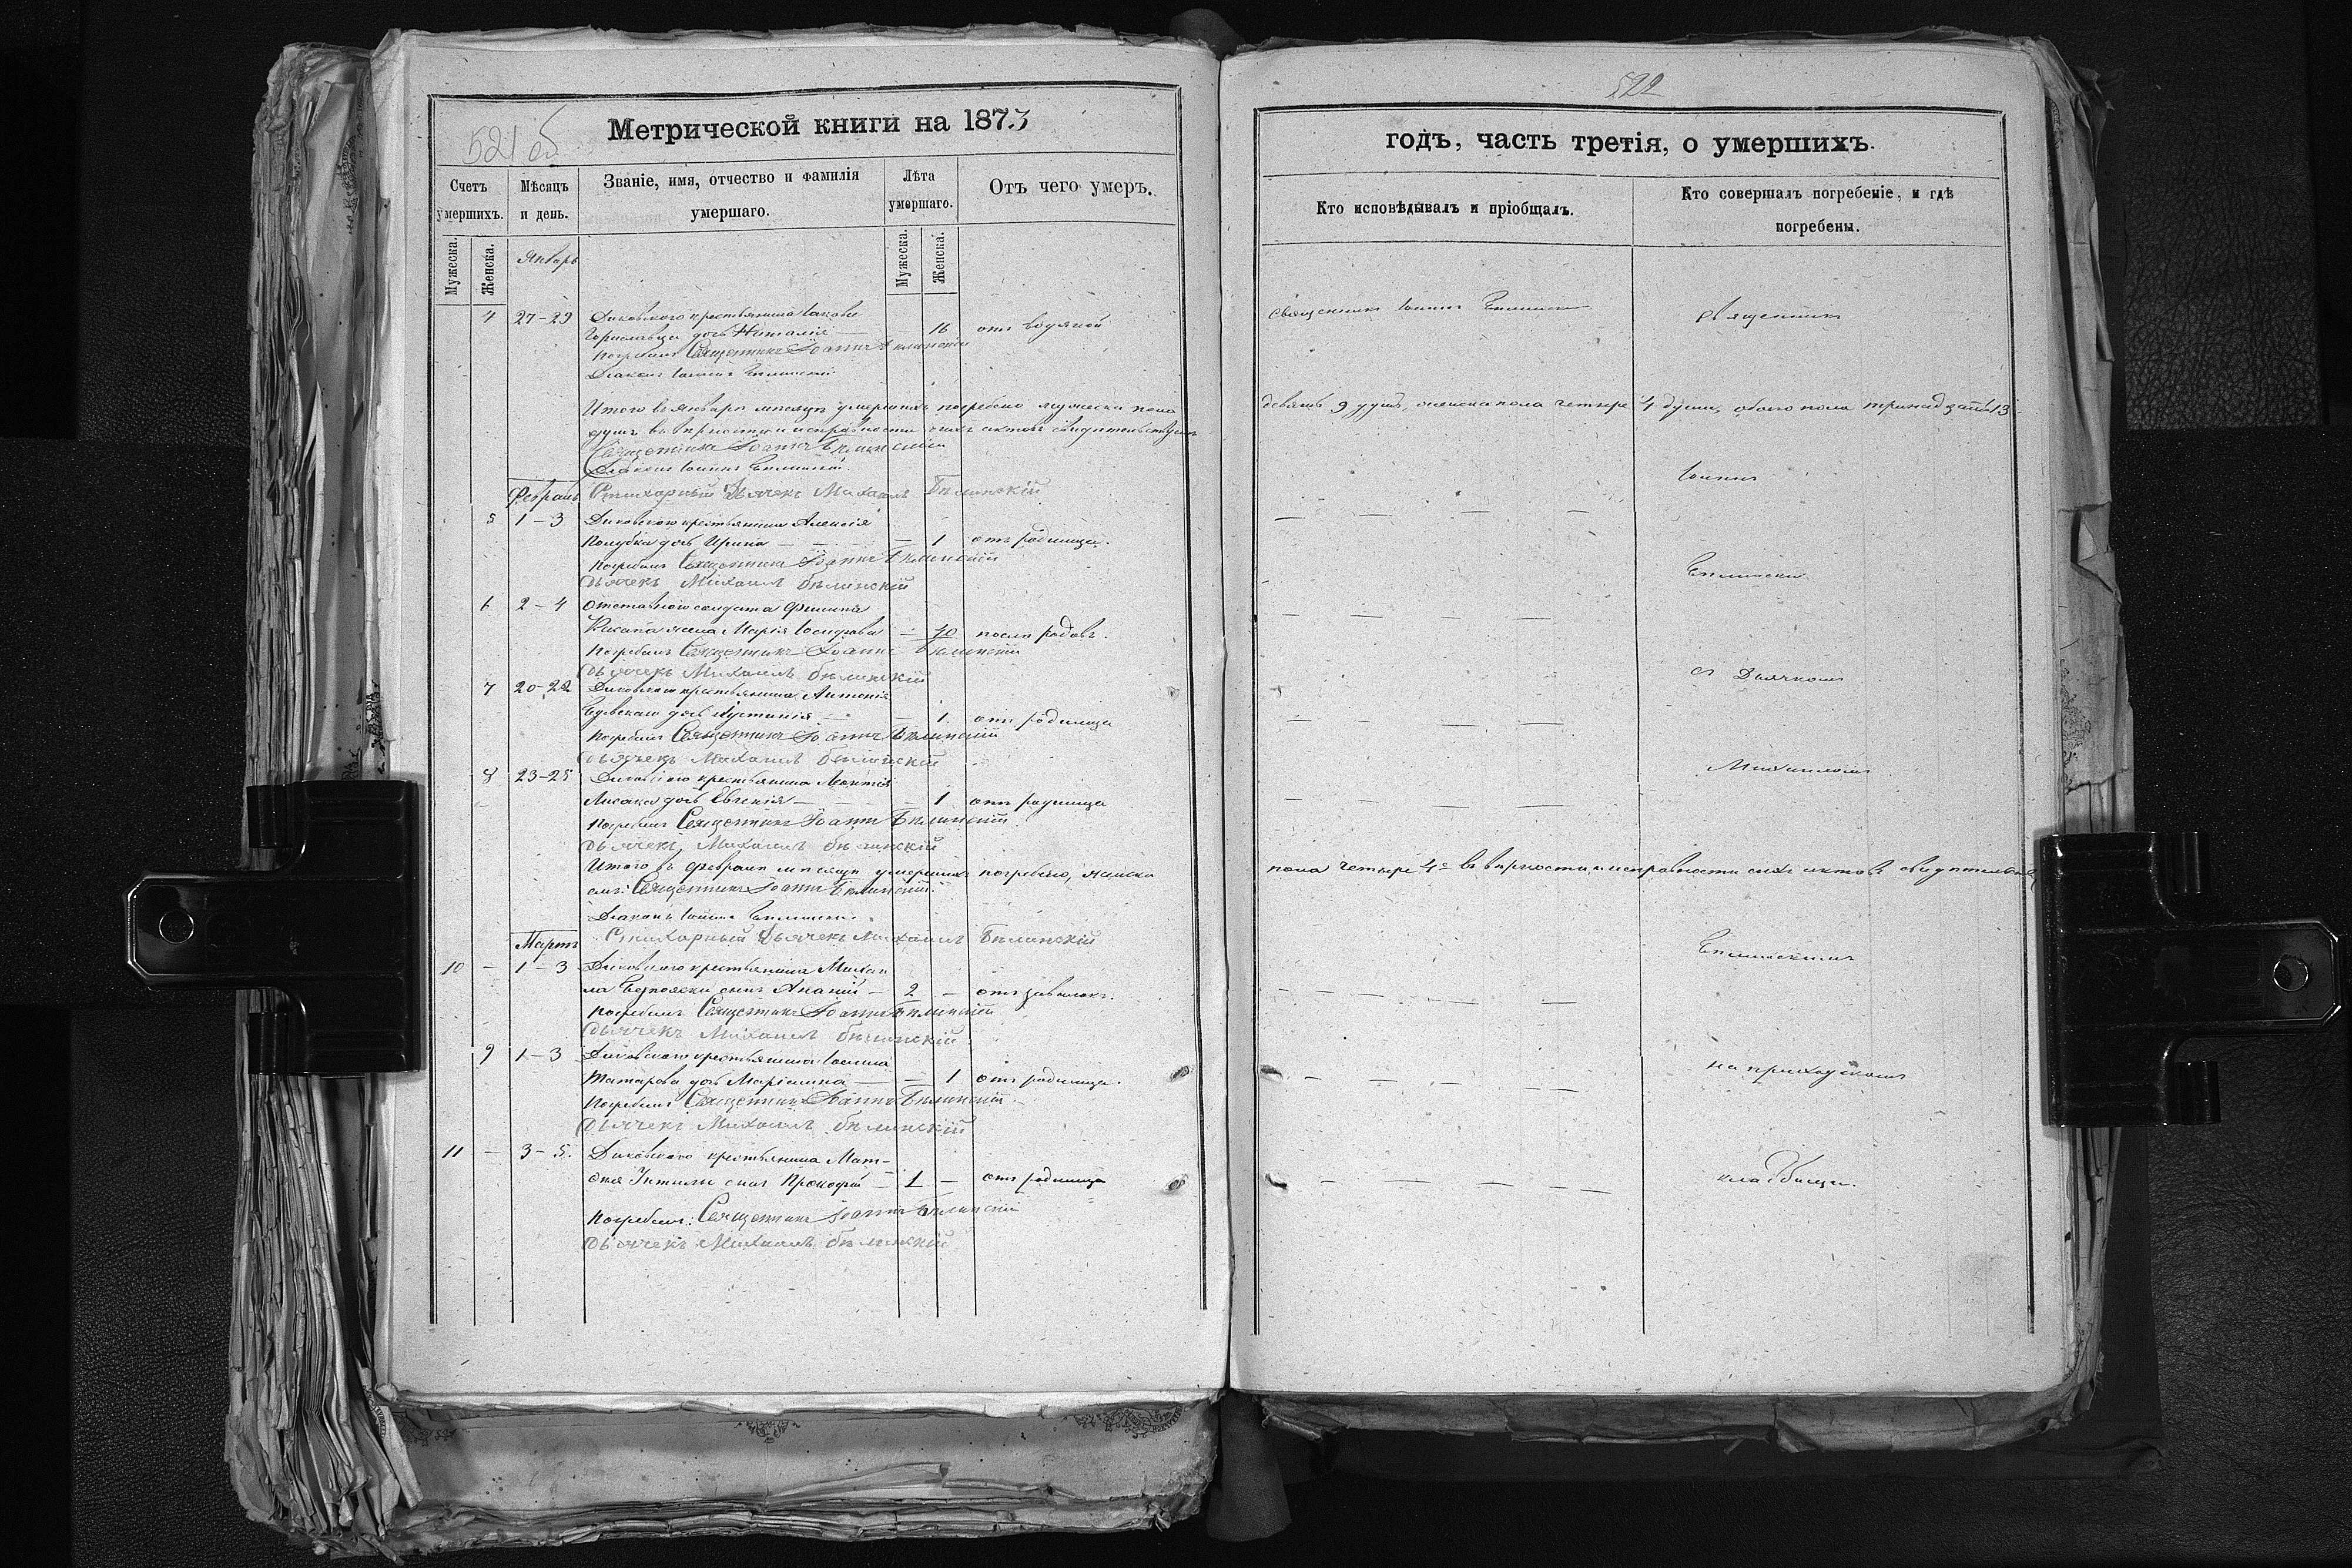 521 об
Метрической книги на 1873
Счетъ умершихъ.
Мужеска.
Женска.
Мѣсяцъ и день.
Званіе, имя, отчество и фамилія умершаго.
Лѣта умершаго.
Мужеска.
Женска.
Отъ чего умеръ.
Январь
4 27-29 Диковского крестьянина Іакова
дочь Наталія — 16 отъ водяной
Погребалъ Священникъ Іоаннъ Бѣлинскій
Діаконъ Іоаннъ Бѣлинскій
Итого въ Январѣ мѣсяцѣ умершихъ погребено мужеска пола
душъ въ вѣрности и исправности сихъ актовъ свидѣтельствуемъ
Священникъ Іоаннъ Бѣлинскій
Діаконъ Іоаннъ Бѣлинскій
Февраль Стихарный Дьячекъ Михаилъ Бѣлинскій
5 1-3 Диковского крестьянина Алексія
Голубка дочь Ирина — — — 1 отъ родимца.
Погребалъ Священникъ Іоаннъ Бѣлинскій
Дьячекъ Михаилъ Бѣлинскій
6 2-4 Отставного солдата Филиппа
жена Марія Іосифова — 40 послѣ родовъ.
Погребалъ Священникъ Іоаннъ Бѣлинскій
Дьячекъ Михаилъ Бѣлинскій
7 20-22 Диковского крестьянина Антонія
дочь Іустинія — — 1 отъ родимца
Погребалъ Священникъ Іоаннъ Бѣлинскій
Дьячекъ Михаилъ Бѣлинскій
8 23-25 Диковского крестьянина Леонтія
Лисака дочь Евгенія — — 1 отъ родимца
Погребалъ Священникъ Іоаннъ Бѣлинскій
Дьячекъ Михаилъ Бѣлинскій
Итого въ Февралѣ мѣсяцѣ умершихъ погребено, женска
емъ: Священникъ Іоаннъ Бѣлинскій
Діаконъ Іоаннъ Бѣлинскій
Мартъ Стихарный Дьячекъ Михаилъ Бѣлинскій
10 — 1-3 Диковского крестьянина Михаи
ла сынъ Ананій — 2 — отъ
Погребалъ Священникъ Іоаннъ Бѣлинскій
Дьячекъ Михаилъ Бѣлинскій
9 1-3 Диковского крестьянина Іоанна
Татарова дочь Маріанна — — 1 отъ родимца.
Погребалъ Священникъ Іоаннъ Бѣлинскій
Дьячекъ Михаилъ Бѣлинскій
11 — 3-5. Диковского крестьянина Мат-
сынъ Прокофій — 1 — отъ родимца
Погребалъ: Священникъ Іоаннъ Бѣлинскій
Дьячекъ Михаилъ Бѣлинскій
522
годъ, часть третія, о умершихъ.
Кто исповѣдывалъ и пріобщалъ.
Кто совершалъ погребеніе, и гдѣ погребены.
Священникъ Іоаннъ Бѣлинскій
Священникъ
девять 9 душъ, женска пола четыре 4 души, обоего пола тринадцать 13
Іоаннъ
Бѣлинскій
с Дьячкомъ
Михаиломъ
пола четыре 4 въ вѣрности и исправности сихъ актовъ свидѣтельству
Бѣлинскимъ
на приходскомъ
кладбищѣ.